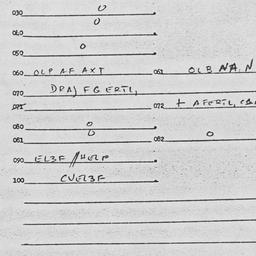 030 0
040 0
050 0
060 OLP AF AXT 061 OLB NA, N
070 DRAJ FG ERTL,
071 072 + AFERTL,
080 0
081 0 082 0
090 EL3F //HELP
100 CVEL3F